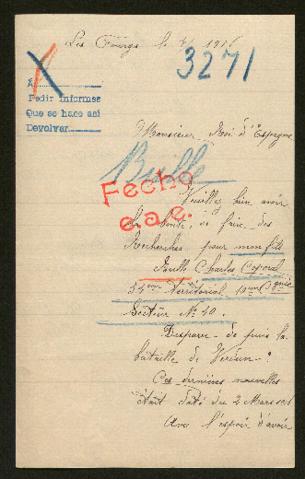 3271
A
Pedir informes
Que se hace así
Devolver
Monsieur Roi d'Espagne
Fecho
Veuillez bien avoir
la bonté de faire des
Recherches pour mon fils
Charles Caporal
Territorial
Secteur No 10.
Disparu de puis la
bataille de Verdun.
Ces dernières nouvelles
était daté du 2 Mars
Avec l'espoir d'avoir